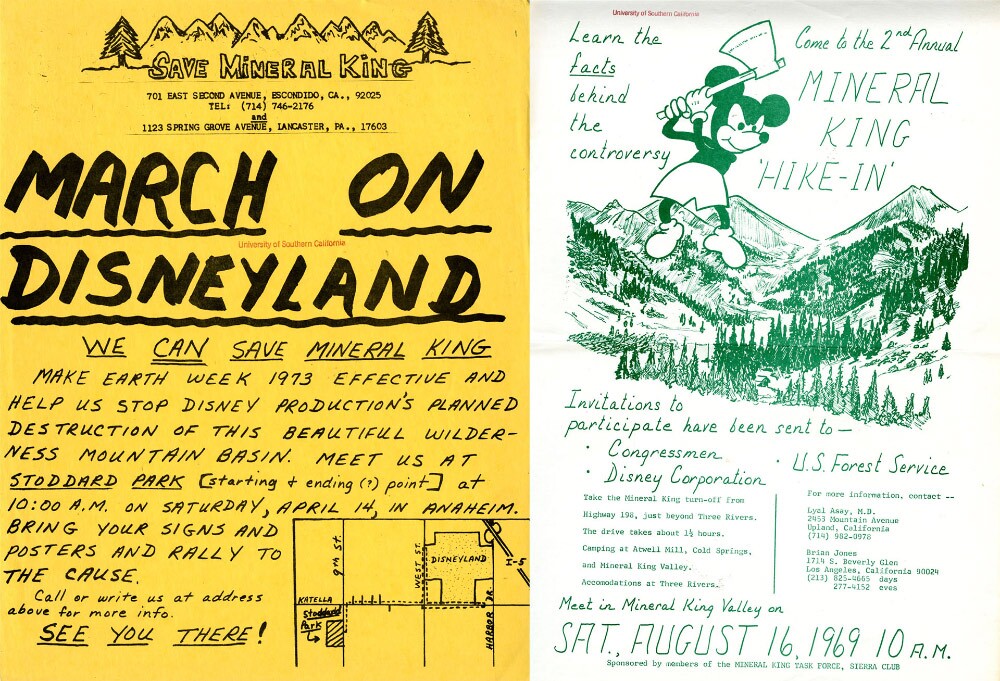 SAVE MINERAL KING
701 EAST SECOND AVENUE, ESCONDIDO, CA., 92025
TEL: (714) 746-2176
and
1123 SPRING GROVE AVENUE, LANCASTER, PA., 17603
MARCH ON
University of Southern California
DISNEYLAND
WE CAN SAVE MINERAL KING
MAKE EARTH WEEK 1973 EFFECTIVE AND
HELP US STOP DISNEY PRODUCTION'S PLANNED
DESTRUCTION OF THIS BEAUTIFUL WILDER-
NESS MOUNTAIN BASIN. MEET US AT
STODDARD PARK [starting & ending (?) point] at
10:00 A.M. ON SATURDAY, APRIL 14, IN ANAHEIM.
BRING YOUR SIGNS AND
POSTERS AND RALLY TO
THE CAUSE.
Call or write us at address
above for more info.
SEE YOU THERE!
9TH ST.
WEST ST.
DISNEYLAND
I-5
KATELLA
Stoddard
Park
HARBOR DR.
University of Southern California
Learn the
facts
behind
the
controversy
Come to the 2nd Annual
MINERAL
KING
'HIKE-IN'
Invitations to
participate have been sent to —
· Congressmen
· Disney Corporation
· U.S. Forest Service
Take the Mineral King turn-off from
Highway 198, just beyond Three Rivers.
The drive takes about 1½ hours.
Camping at Atwell Mill, Cold Springs,
and Mineral King Valley.
Accomodations at Three Rivers.
For more information, contact --
Lyal Asay, M.D.
2453 Mountain Avenue
Upland, California
(714) 982-0978
Brian Jones
1714 S. Beverly Glen
Los Angeles, California 90024
(213) 825-4665 days
277-4152 eves
Meet in Mineral King Valley on
SAT., AUGUST 16, 1969 10 A.M.
Sponsored by members of the MINERAL KING TASK FORCE, SIERRA CLUB